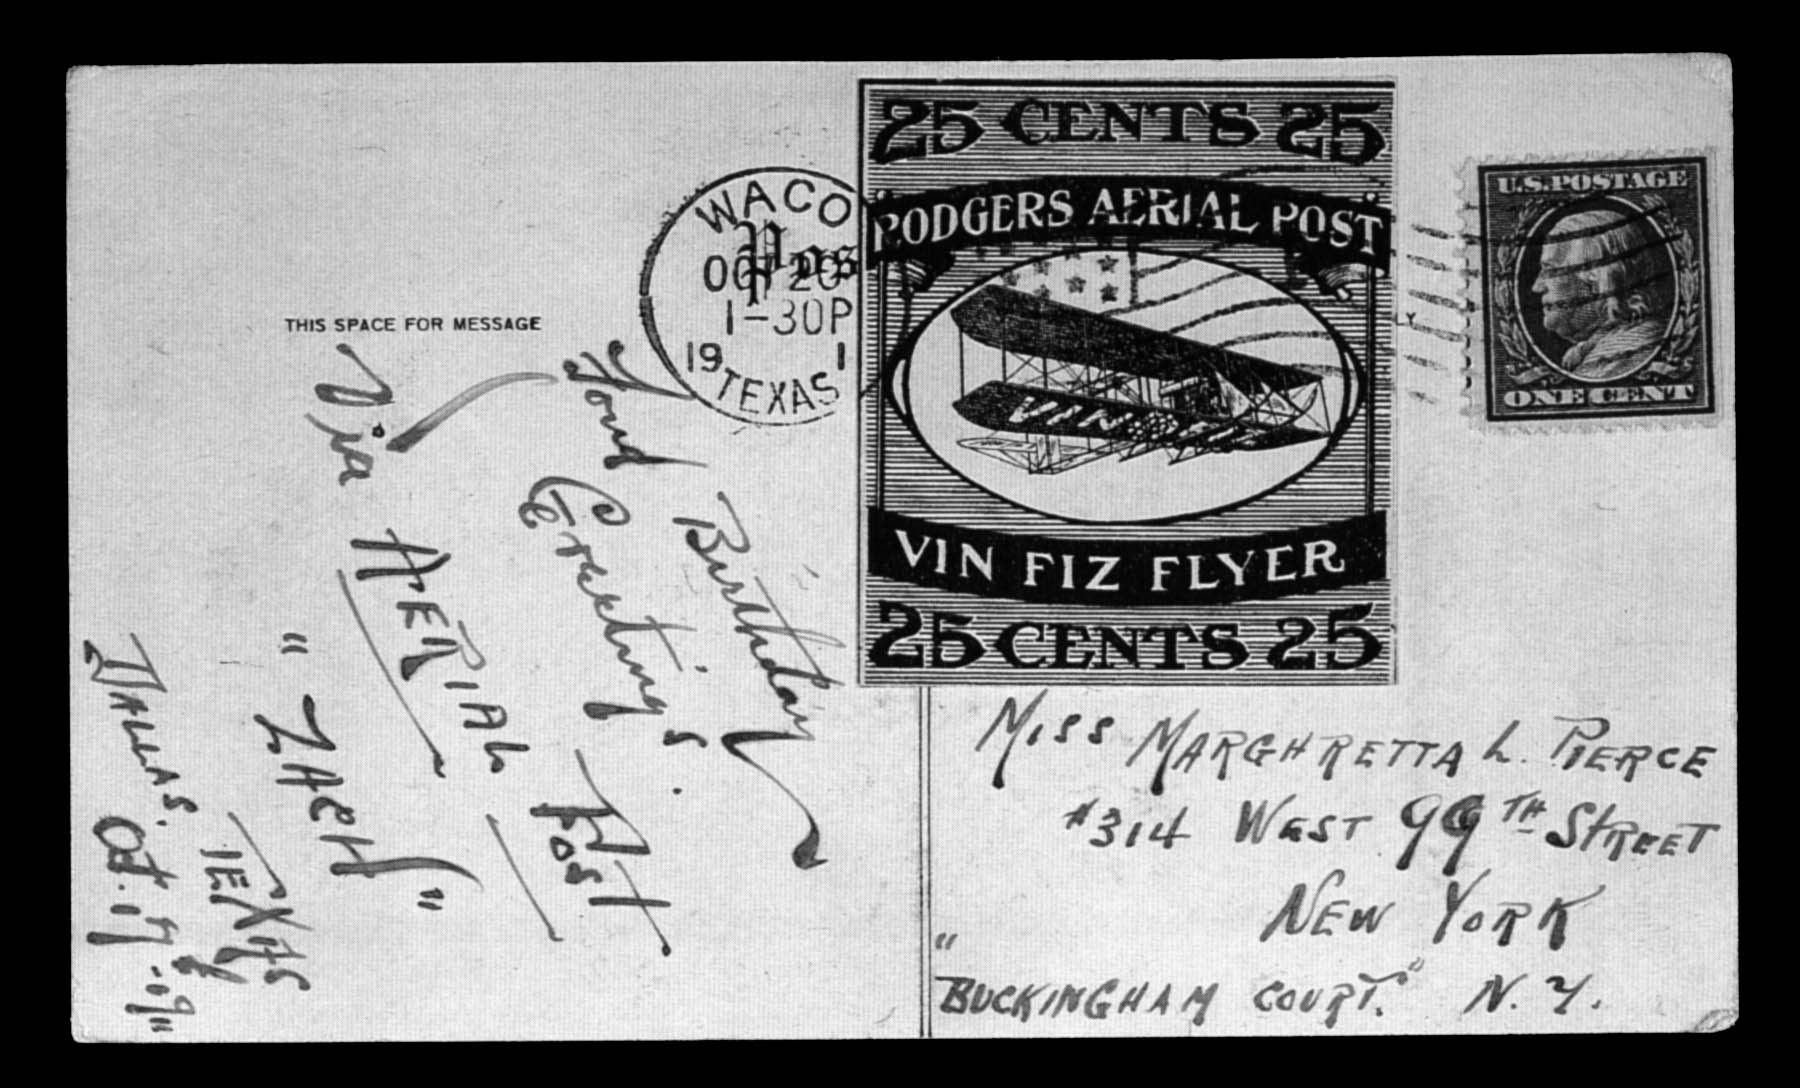 THIS SPACE FOR MESSAGE
Fond Birthday
Greetings.
Via AERIAL Post
"ZACH"
DALLAS. TEXAS
Oct. 17
WACO
OCT 20
1-30P
19 1
TEXAS
Pos
25 CENTS 25
RODGERS AERIAL POST
VIN FIZ
VIN FIZ FLYER
25 CENTS 25
U.S. POSTAGE
ONE CENT
MISS MARGHRETTA L. PIERCE
#314 WEST 99TH STREET
NEW YORK
"BUCKINGHAM COURT." N.Y.